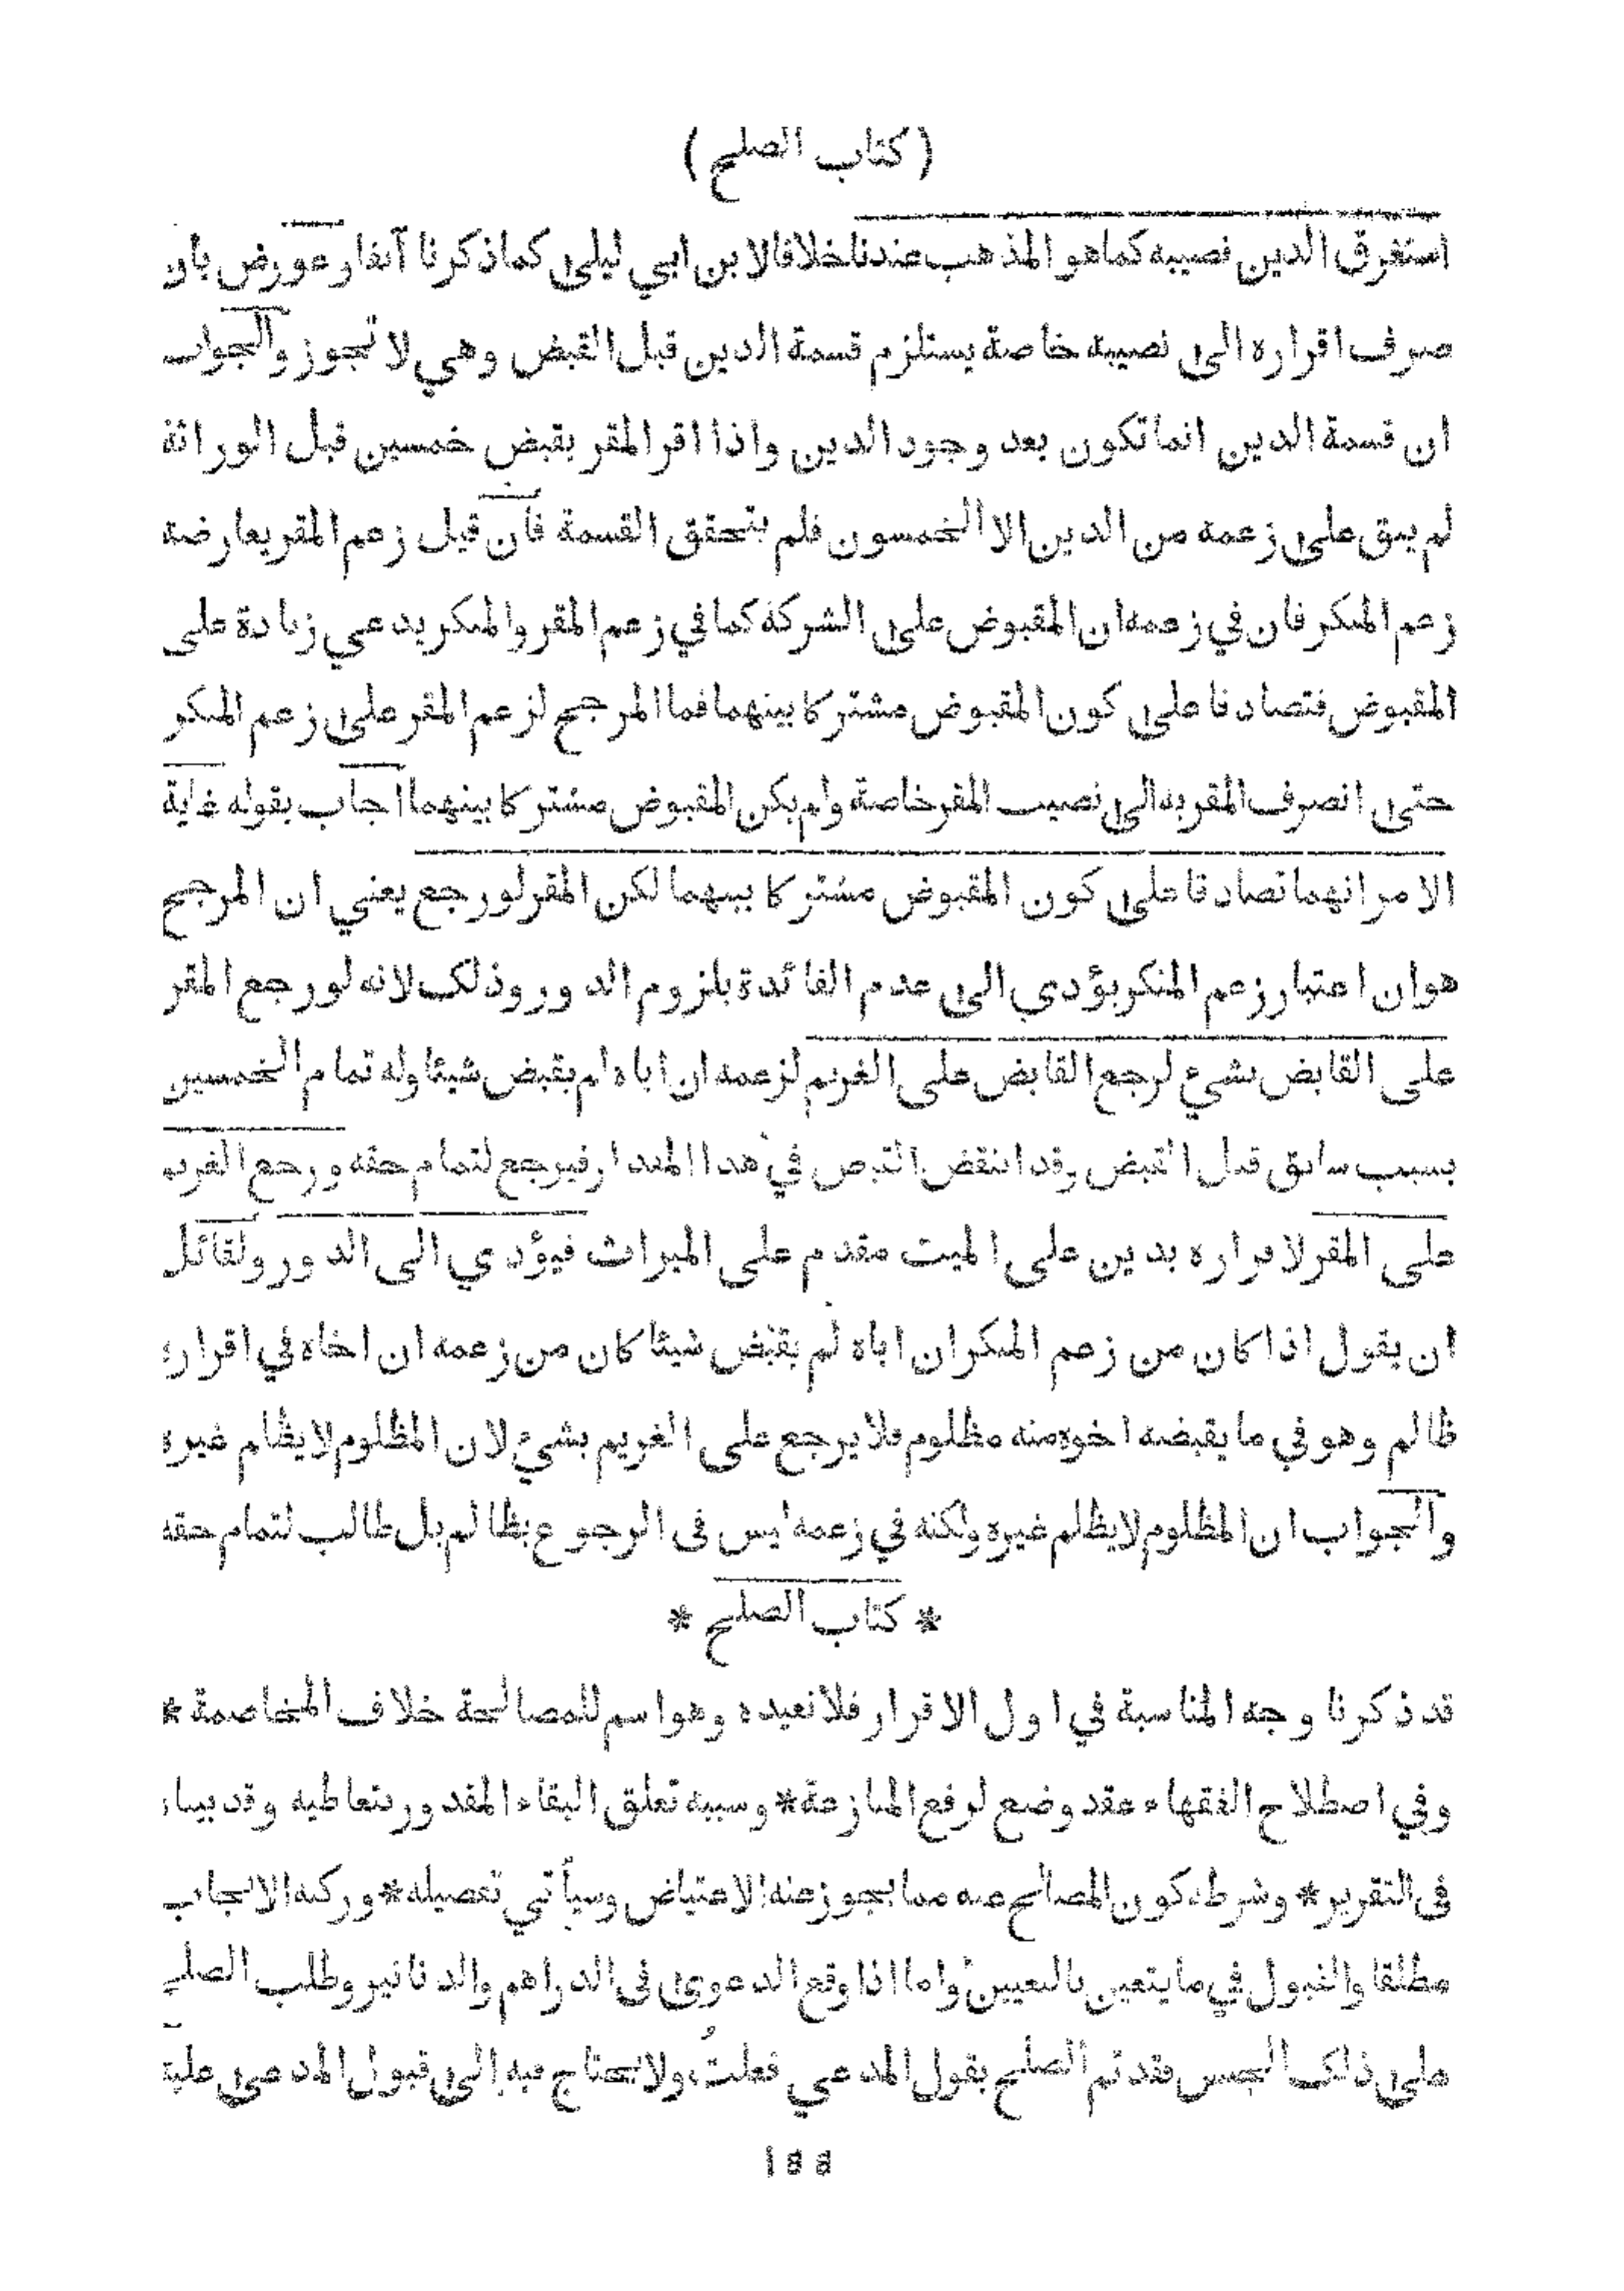 ( كتاب الصلح )
استغرق الدين نصيبه كما هو المذهب عندنا خلافا لابن ابي ليلى كما ذكرنا آنفا وعورض بان
صرف اقراره الى نصيبه خاصة يستلزم قسمة الدين قبل القبض وهي لا تجوز والجواب
ان قسمة الدين انما تكون بعد وجود الدين واذا اقر المقر بقبض خمسين قبل الوراثة
لم يبق على زعمه من الدين الا الخمسون فلم يتحقق القسمة فان قيل زعم المقر يعارضه
زعم المنكر فان في زعمه ان المقبوض على الشركة كما في زعم المقر والمنكر يدعي زيادة على
المقبوض فتصادقا على كون المقبوض مشتركا بينهما فما المرجح لزعم المقر على زعم المنكر
حتى انصرف المقر به الى نصيب المقر خاصة ولم يكن المقبوض مشتركا بينهما اجاب بقوله غاية
الامر انهما تصادقا على كون المقبوض مشتركا بينهما لكن المقر لو رجع يعني ان المرجح
هو ان اعتبار زعم المنكر يؤدي الى عدم الفائدة بلزوم الدور وذلك لانه لو رجع المقر
على القابض بشيء لرجع القابض على الغريم لزعمه ان اباه لم يقبض شيئا وله تمام الخمسين
بسبب سابق قبل القبض وقد انتقض القبض في هذا المقدار فيرجع لتمام حقه ورجع الغريم
على المقر لاقراره بدين على الميت مقدم على الميراث فيؤدي الى الدور ولقائل
ان يقول اذا كان من زعم المنكر ان اباه لم يقبض شيئا كان من زعمه ان اخاه في اقراره
ظالم وهو في ما يقبضه اخوه منه مظلوم فلا يرجع على الغريم بشيء لان المظلوم لا يظلم غيره
والجواب ان المظلوم لا يظلم غيره ولكنه في زعمه ليس فى الرجوع بظالم بل طالب لتمام حقه
* كتاب الصلح *
قد ذكرنا وجه المناسبة في اول الاقرار فلا نعيده وهو اسم للمصالحة خلاف المخاصمة *
وفي اصطلاح الفقهاء عقد وضع لرفع المنازعة * وسببه تعلق البقاء المقدور بتعاطيه وقد بيناه
فى التقرير * وشرطه كون المصالح عنه مما يجوز عنه الاعتياض وسيأتي تفصيله * وركنه الايجاب
مطلقا والقبول في ما يتعين بالتعيين واما اذا وقع الدعوى فى الدراهم والدنانير وطلب الصلح
على ذلك الجنس فقد تم الصلح بقول المدعي فعلت ولا يحتاج فيه الى قبول المدعى عليه